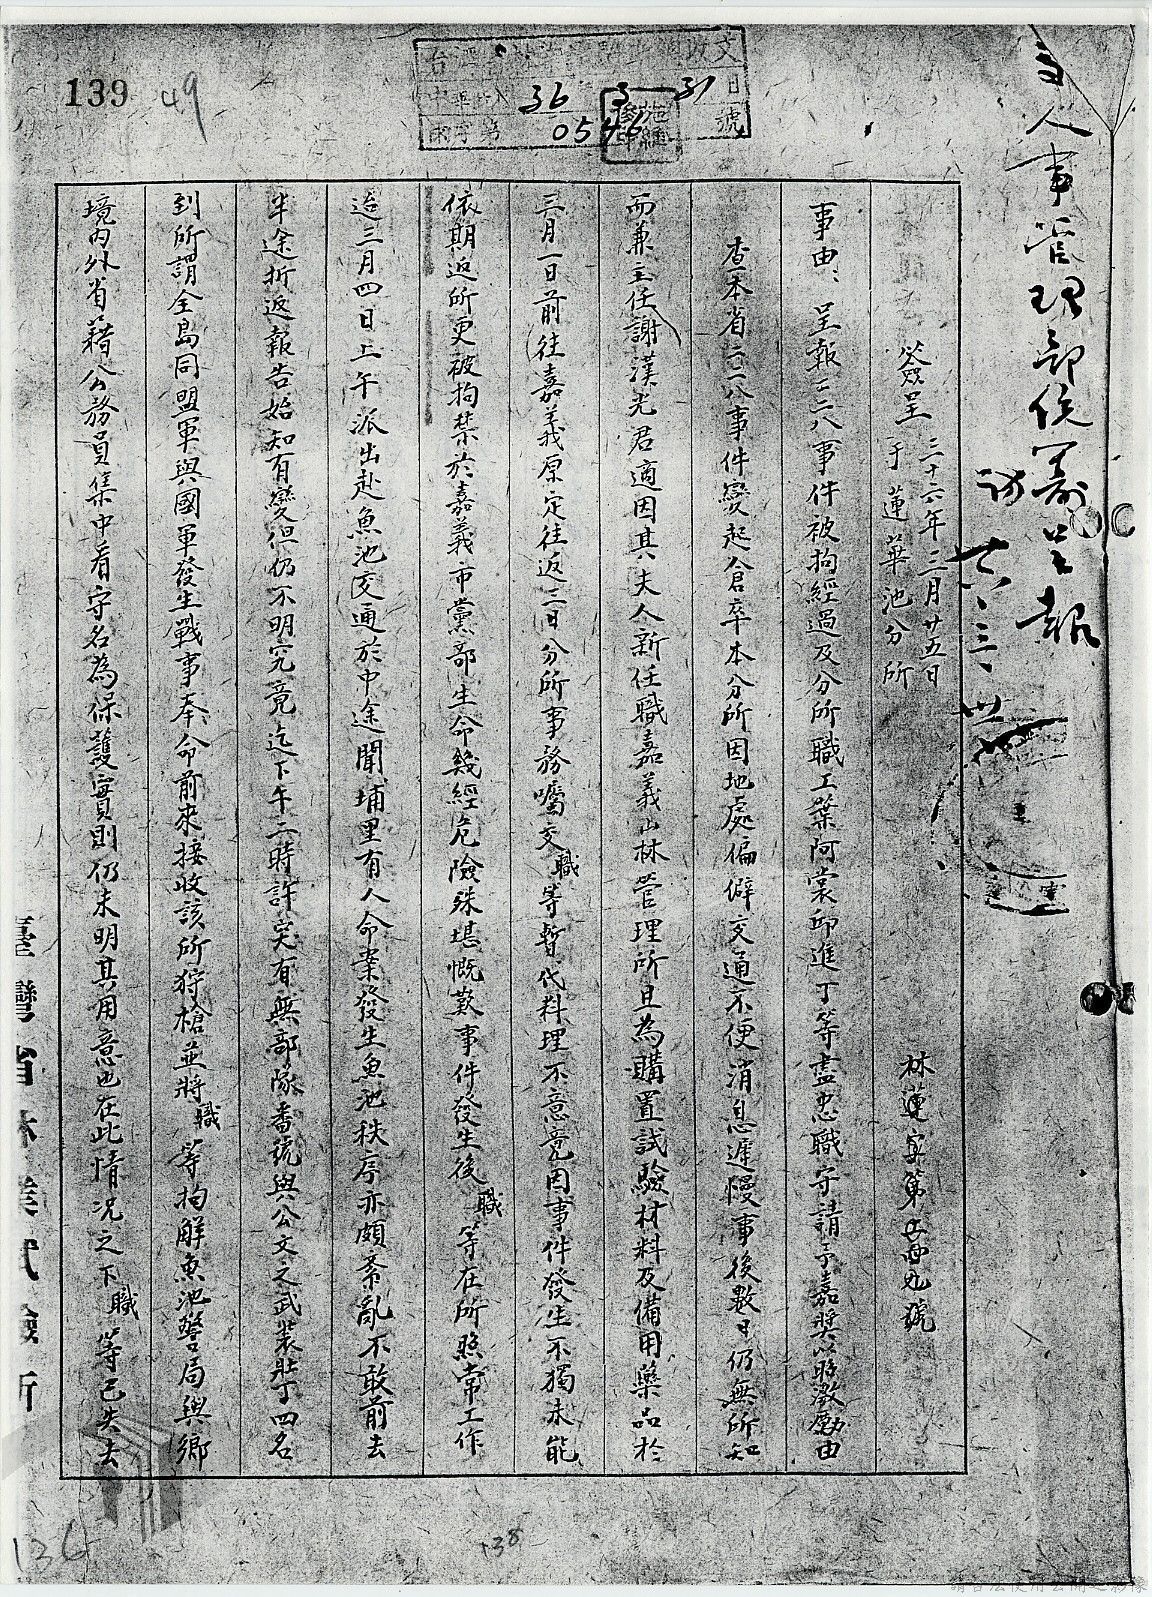 139
49
36 3 31
0546
人事管理部
簽呈 三十六年三月廿五日
于蓮華池分所
林蓮字第 號
事由：呈報二二八事件被拘經過及分所職工葉阿裳邱進丁等盡忠職守請予嘉獎以昭激勵由
查本省二二八事件變起倉卒本分所因地處偏僻交通不便消息遲慢事後數日仍無所知
而兼主任謝漢光君適因其夫人新任職嘉義山林管理所且為購置試驗材料及備用藥品於
三月一日前往嘉義原定往返三日分所事務囑交職等暫代料理不意竟因事件發生不獨未能
依期返所更被拘禁於嘉義市黨部生命幾經危險殊堪慨歎事件發生後職等在所照常工作
迨三月四日上午派出赴魚池交通於中途聞埔里有人命案發生魚池秩序亦頗紊亂不敢前去
半途折返報告始知有變但仍不明究竟迄下午二時許突有無部隊番號與公文之武裝壯丁四名
到所謂全島同盟軍與國軍發生戰事奉命前來接收該所狩槍並將職等拘解魚池警局與鄉
境內外省籍公務員集中看守名為保護實則仍未明其用意也在此情況之下職等已失去
臺灣省林業試驗所
138
136